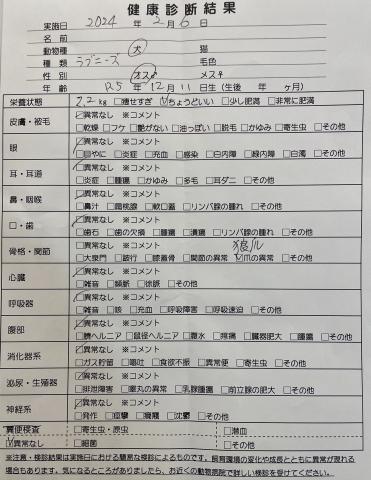 健康診断結果
実施日 2024 年 2月 6日
名前
動物種 犬 猫
種類 ラブニーズ 毛色
性別 オス♂ メス♀
年齢 R5年12月11日生(生後 年 ヶ月)
栄養状態 2.2kg □痩せすぎ ☑ちょうどいい □少し肥満 □非常に肥満
皮膚・被毛 ☑異常なし ※コメント
□乾燥 □フケ □艶がない □油っぽい □脱毛 □かゆみ □寄生虫 □その他
眼 ☑異常なし ※コメント
□目やに □炎症 □充血 □感染 □白内障 □緑内障 □白濁 □その他
耳・耳道 ☑異常なし ※コメント
□炎症 □腫瘍 □かゆみ □多毛 □耳ダニ □その他
鼻・咽喉 ☑異常なし ※コメント
□鼻汁 □扁桃腺 □軟口蓋 □リンパ腺の腫れ □その他
口・歯 ☑異常なし ※コメント
□歯石 □歯の欠損 □腫瘍 □潰瘍 □リンパ腺の腫れ □その他
骨格・関節 □異常なし ※コメント 狼爪
□大泉門 □跛行 □膝蓋骨 □関節の異常 ☑爪の異常 □その他
心臓 ☑異常なし ※コメント
□雑音 □頻脈 □徐脈 □その他
呼吸器 ☑異常なし ※コメント
□雑音 □咳 □充血 □呼吸障害 □呼吸速迫 □その他
腹部 ☑異常なし ※コメント
□臍ヘルニア □鼠径ヘルニア □腹水 □疼痛 □臓器肥大 □腫瘤 □その他
消化器系 ☑異常なし ※コメント
□ガス貯留 □嘔吐 □食欲不振 □異常便 □寄生虫 □その他
泌尿・生殖器 ☑異常なし ※コメント
□排泄障害 □睾丸の異常 □乳腺腫瘍 □前立腺の肥大 □その他
神経系 ☑異常なし ※コメント
□発作 □痙攣 □麻痺 □沈鬱 □その他
糞便検査 □寄生虫・原虫 □潜血
☑異常なし □細菌 □その他
※注意・検診結果は実施日における簡易な検診によるものです。飼育環境の変化や成長とともに異常が現れる
場合もあります。気になるところがありましたら、お近くの動物病院で詳しい検診を受けてください。